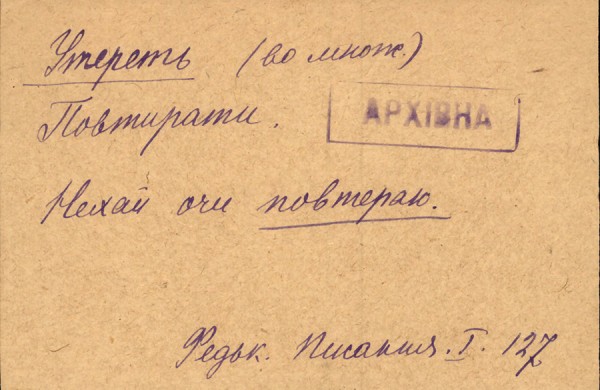 Утереть (во множ.)
Повтирати.
АРХІВНА
Нехай очи повтераю.
Федьк. Писання. I. 127